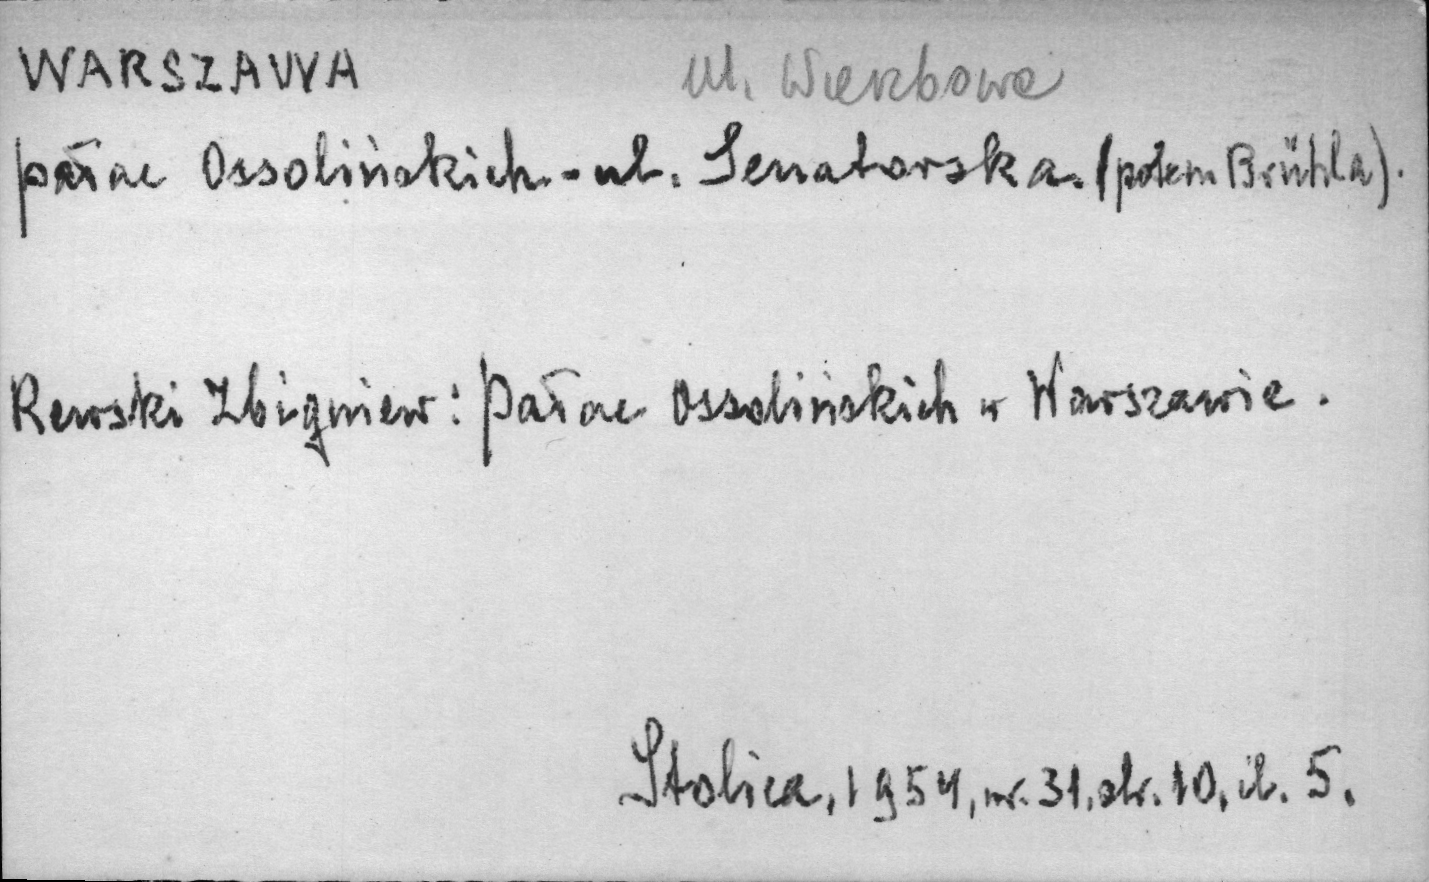 WARSZAWA ul. Wierzbowa
pałac Ossolińskich - ul. Senatorska. (potem Brühla).
Rewski Zbigniew: Pałac Ossolińskich w Warszawie.
Stolica, 1954, nr. 31, str. 10, il. 5.